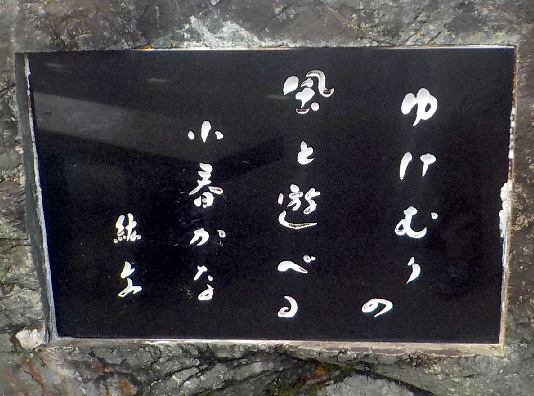 ゆけむりの
風と遊べる
小春かな